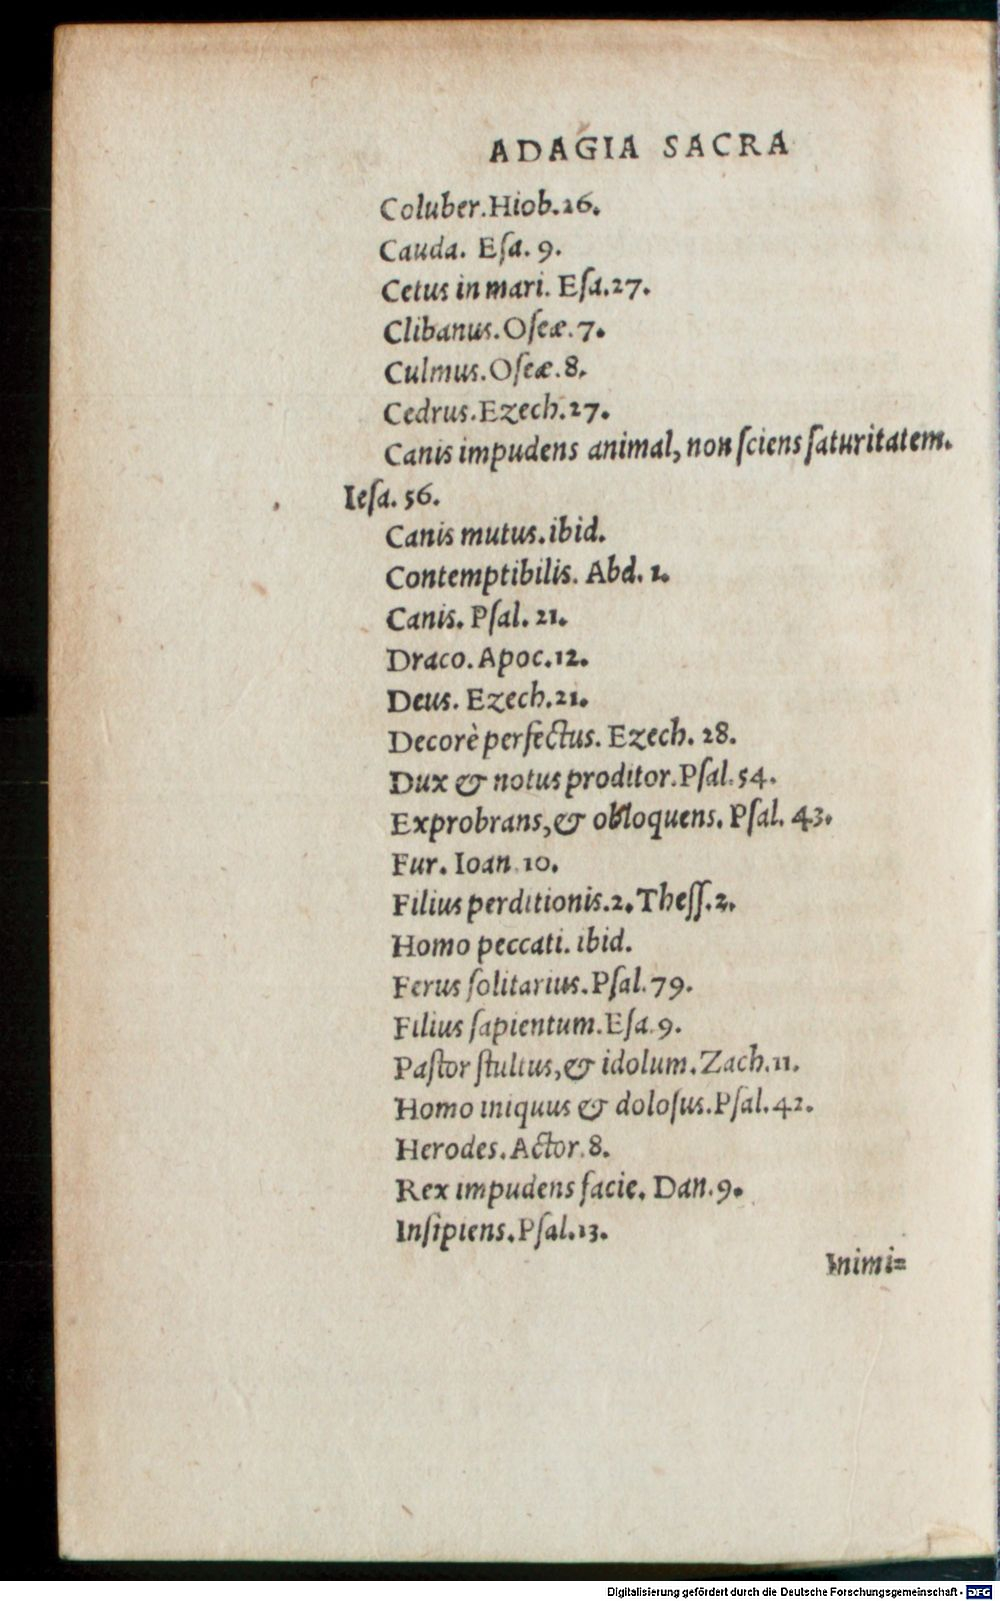 ADAGIA SACRA
Coluber.Hiob.26.
Cauda. Eſa. 9.
Cetus in mari. Eſa.27.
Clibanus.Oſeæ.7.
Culmus.Oſeæ.8.
Cedrus.Ezech.27.
Canis impudens animal, non ſciens ſaturitatem.
Ieſa. 56.
Canis mutus.ibid.
Contemptibilis. Abd. 1.
Canis. Pſal. 21.
Draco.Apoc.12.
Deus. Ezech.21.
Decorè perfectus. Ezech. 28.
Dux & notus proditor.Pſal.54.
Exprobrans,& obloquens. Pſal. 43.
Fur. Ioan.10.
Filius perditionis.2.Theſſ.2.
Homo peccati. ibid.
Ferus ſolitarius.Pſal.79.
Filius ſapientum.Eſa.9.
Paſtor ſtultus,& idolum.Zach.11.
Homo iniquus & doloſus.Pſal.42.
Herodes.Actor.8.
Rex impudens facie. Dan.9.
Inſipiens.Pſal.13.
Inimi=
Digitalisierung gefördert durch die Deutsche Forschungsgemeinschaft - DFG